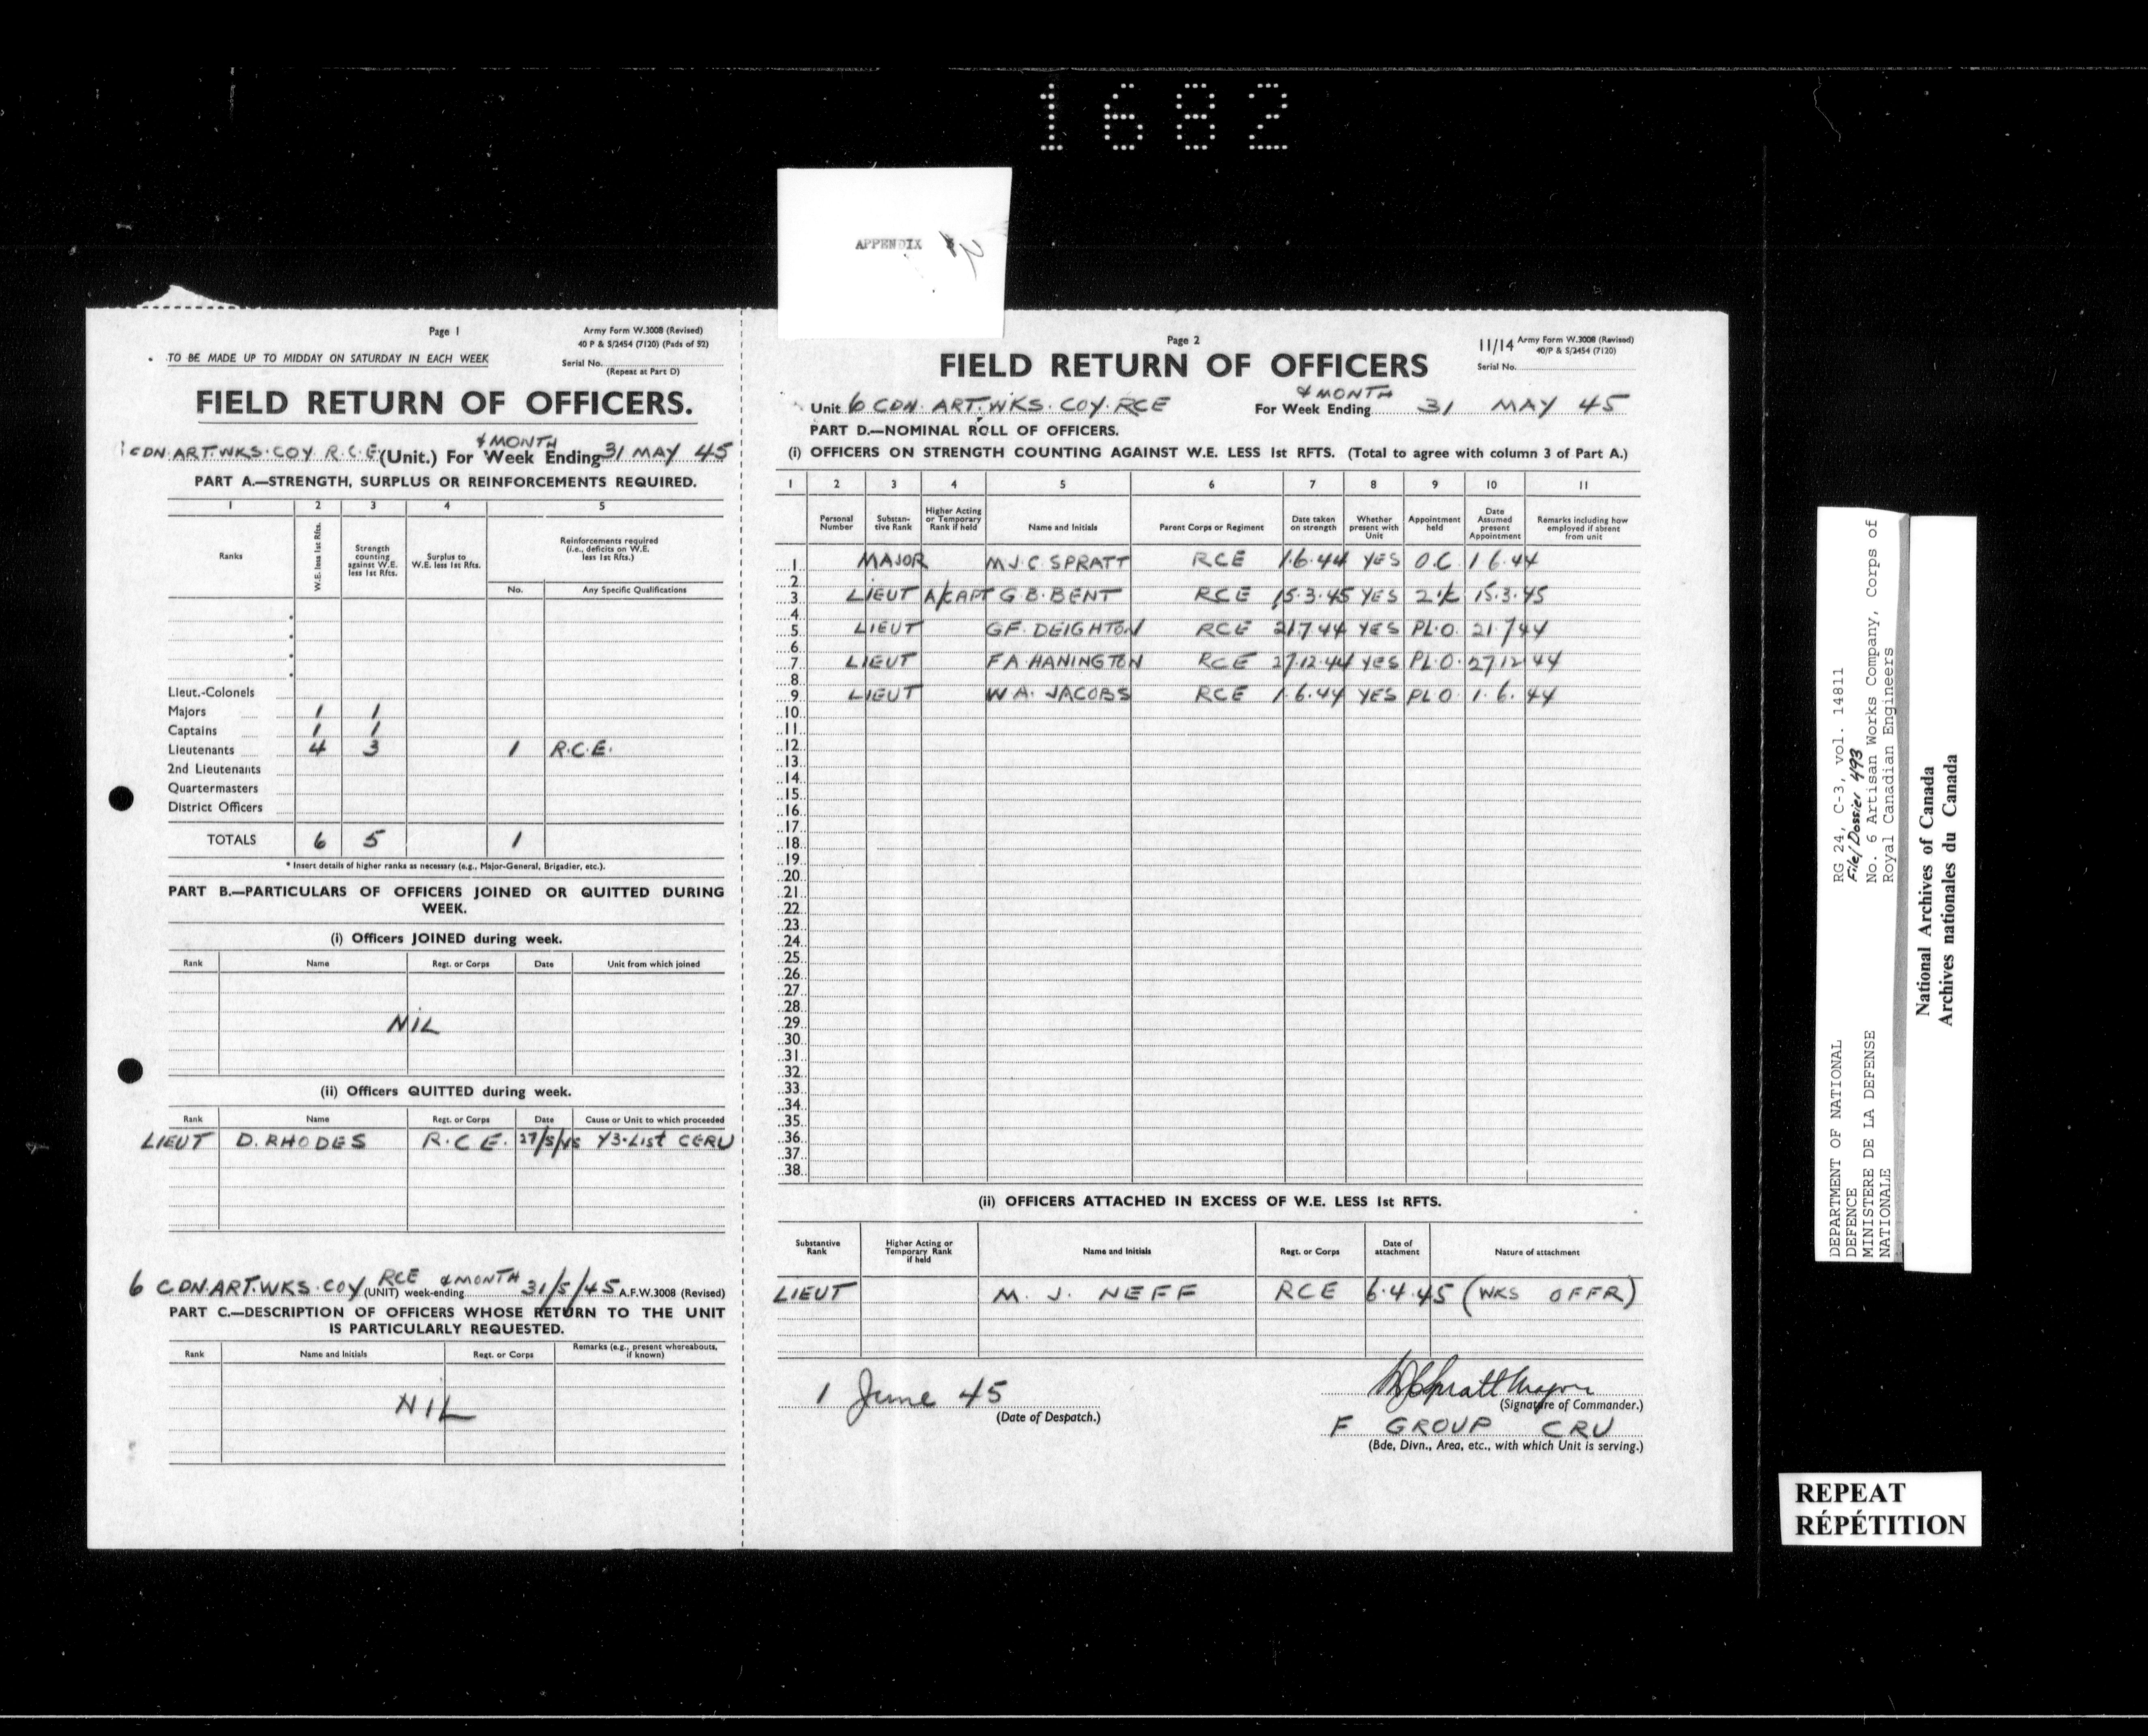 1682
APPENDIX
Page 1
Army Form W.3008 (Revised)
40 P & S/2454 (7120) (Pads of 52)
TO BE MADE UP TO MIDDAY ON SATURDAY IN EACH WEEK
Serial No.
(Repeat at Part D)
FIELD RETURN OF OFFICERS.
& MONTH
CDN. ART. WKS. COY R.C.E. (Unit.) For Week Ending 31 MAY 45
PART A.—STRENGTH, SURPLUS OR REINFORCEMENTS REQUIRED.
1 2 3 4 5
Ranks
W.E. less 1st Rfts.
Strength counting against W.E. less 1st Rfts.
Surplus to W.E. less 1st Rfts.
Reinforcements required (i.e., deficits on W.E. less 1st Rfts.)
No. Any Specific Qualifications
Lieut.-Colonels
Majors 1 1
Captains 1 1
Lieutenants 4 3 1 R.C.E.
2nd Lieutenants
Quartermasters
District Officers
TOTALS 6 5 1
* Insert details of higher ranks as necessary (e.g., Major-General, Brigadier, etc.).
PART B.—PARTICULARS OF OFFICERS JOINED OR QUITTED DURING
WEEK.
(i) Officers JOINED during week.
Rank Name Regt. or Corps Date Unit from which joined
NIL
(ii) Officers QUITTED during week.
Rank Name Regt. or Corps Date Cause or Unit to which proceeded
LIEUT D. RHODES R.C.E. 27/5/45 Y3-List CERU
RCE & MONTH
6 CDN. ART. WKS. COY (UNIT) week-ending 31/5/45 A.F.W.3008 (Revised)
PART C.—DESCRIPTION OF OFFICERS WHOSE RETURN TO THE UNIT
IS PARTICULARLY REQUESTED.
Rank Name and Initials Regt. or Corps Remarks (e.g., present whereabouts, if known)
NIL
Page 2
11/14 Army Form W.3008 (Revised)
40/P & S/2454 (7120)
Serial No.
FIELD RETURN OF OFFICERS
& MONTH
Unit 6 CDN. ART. WKS. COY. RCE For Week Ending 31 MAY 45
PART D.—NOMINAL ROLL OF OFFICERS.
(i) OFFICERS ON STRENGTH COUNTING AGAINST W.E. LESS 1st RFTS. (Total to agree with column 3 of Part A.)
1 2 3 4 5 6 7 8 9 10 11
Personal Number
Substantive Rank
Higher Acting or Temporary Rank if held
Name and Initials
Parent Corps or Regiment
Date taken on strength
Whether present with Unit
Appointment held
Date Assumed present Appointment
Remarks including how employed if absent from unit
1 MAJOR M.J.C. SPRATT RCE 1.6.44 YES O.C. 1 6.44
2
3 LIEUT A/CAPT G.B. BENT RCE 15.3.45 YES 15.3.45
4
5 LIEUT G.F. DEIGHTON RCE 21.7.44 YES PL.O. 21.7.44
6
7 LIEUT F.A. HANINGTON RCE 27.12.44 YES PL.O. 27 12 44
8
9 LIEUT W.A. JACOBS RCE 1.6.44 YES PL O 1.6.44
10
11
12
13
14
15
16
17
18
19
20
21
22
23
24
25
26
27
28
29
30
31
32
33
34
35
36
37
38
(ii) OFFICERS ATTACHED IN EXCESS OF W.E. LESS 1st RFTS.
Substantive Rank
Higher Acting or Temporary Rank if held
Name and Initials
Regt. or Corps
Date of attachment
Nature of attachment
LIEUT M. J. NEFF RCE 6.4.45 (WKS OFFR)
1 June 45
(Date of Despatch.)
MJCSpratt Major
(Signature of Commander.)
F GROUP CRU
(Bde, Divn., Area, etc., with which Unit is serving.)
DEPARTMENT OF NATIONAL
DEFENCE
MINISTERE DE LA DEFENSE
NATIONALE
RG 24, C-3, vol. 14811
File/Dossier 493
No. 6 Artisan Works Company, Corps of
Royal Canadian Engineers
National Archives of Canada
Archives nationales du Canada
REPEAT
RÉPÉTITION